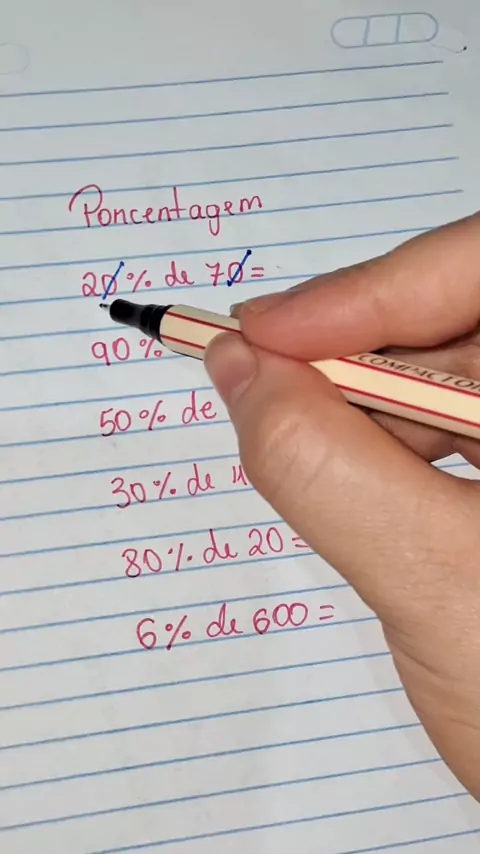 Porcentagem
20% de 70=
90%
50% de
30% de
80% de 20=
6% de 600=
COMPACTOR